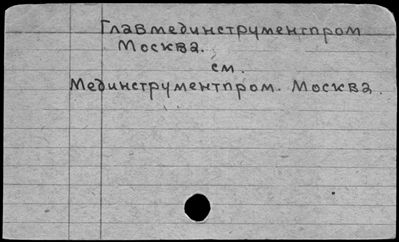 Главмединструментпром
Москва.
см.
Мединструментпром. Москва.